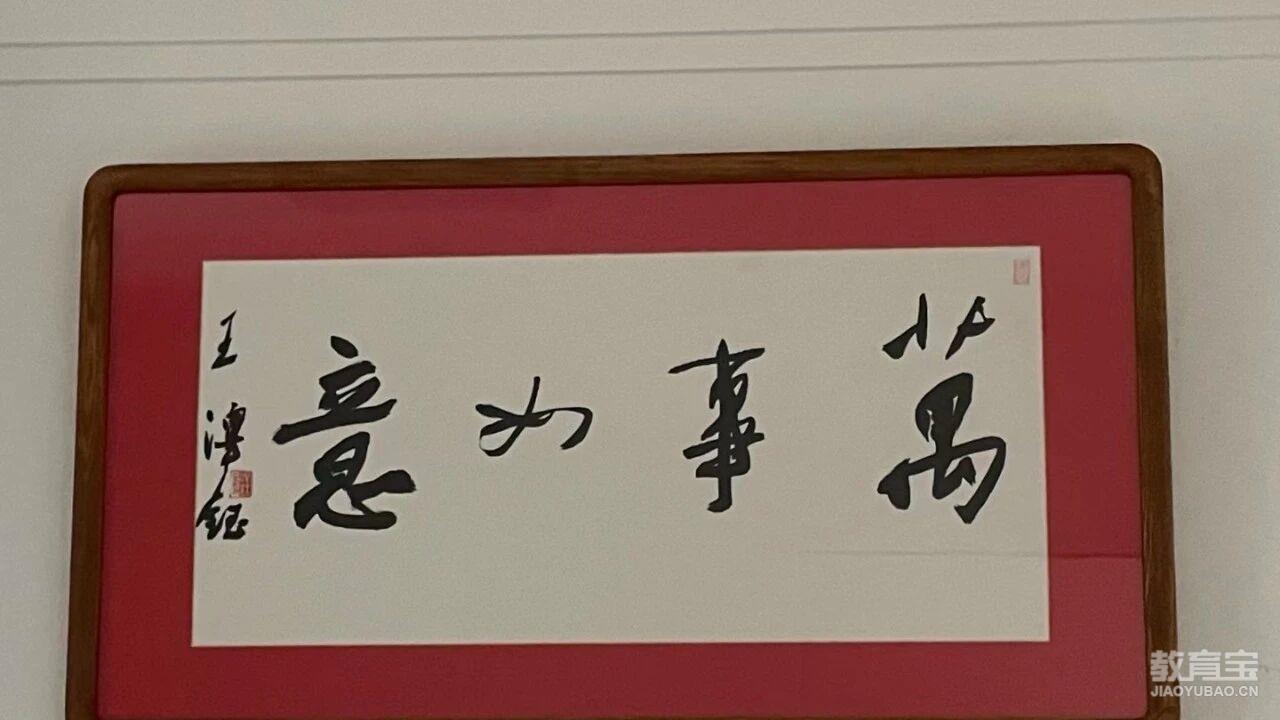 萬事如意
王鴻鈺
教育宝
JIAOYUBAO.CN